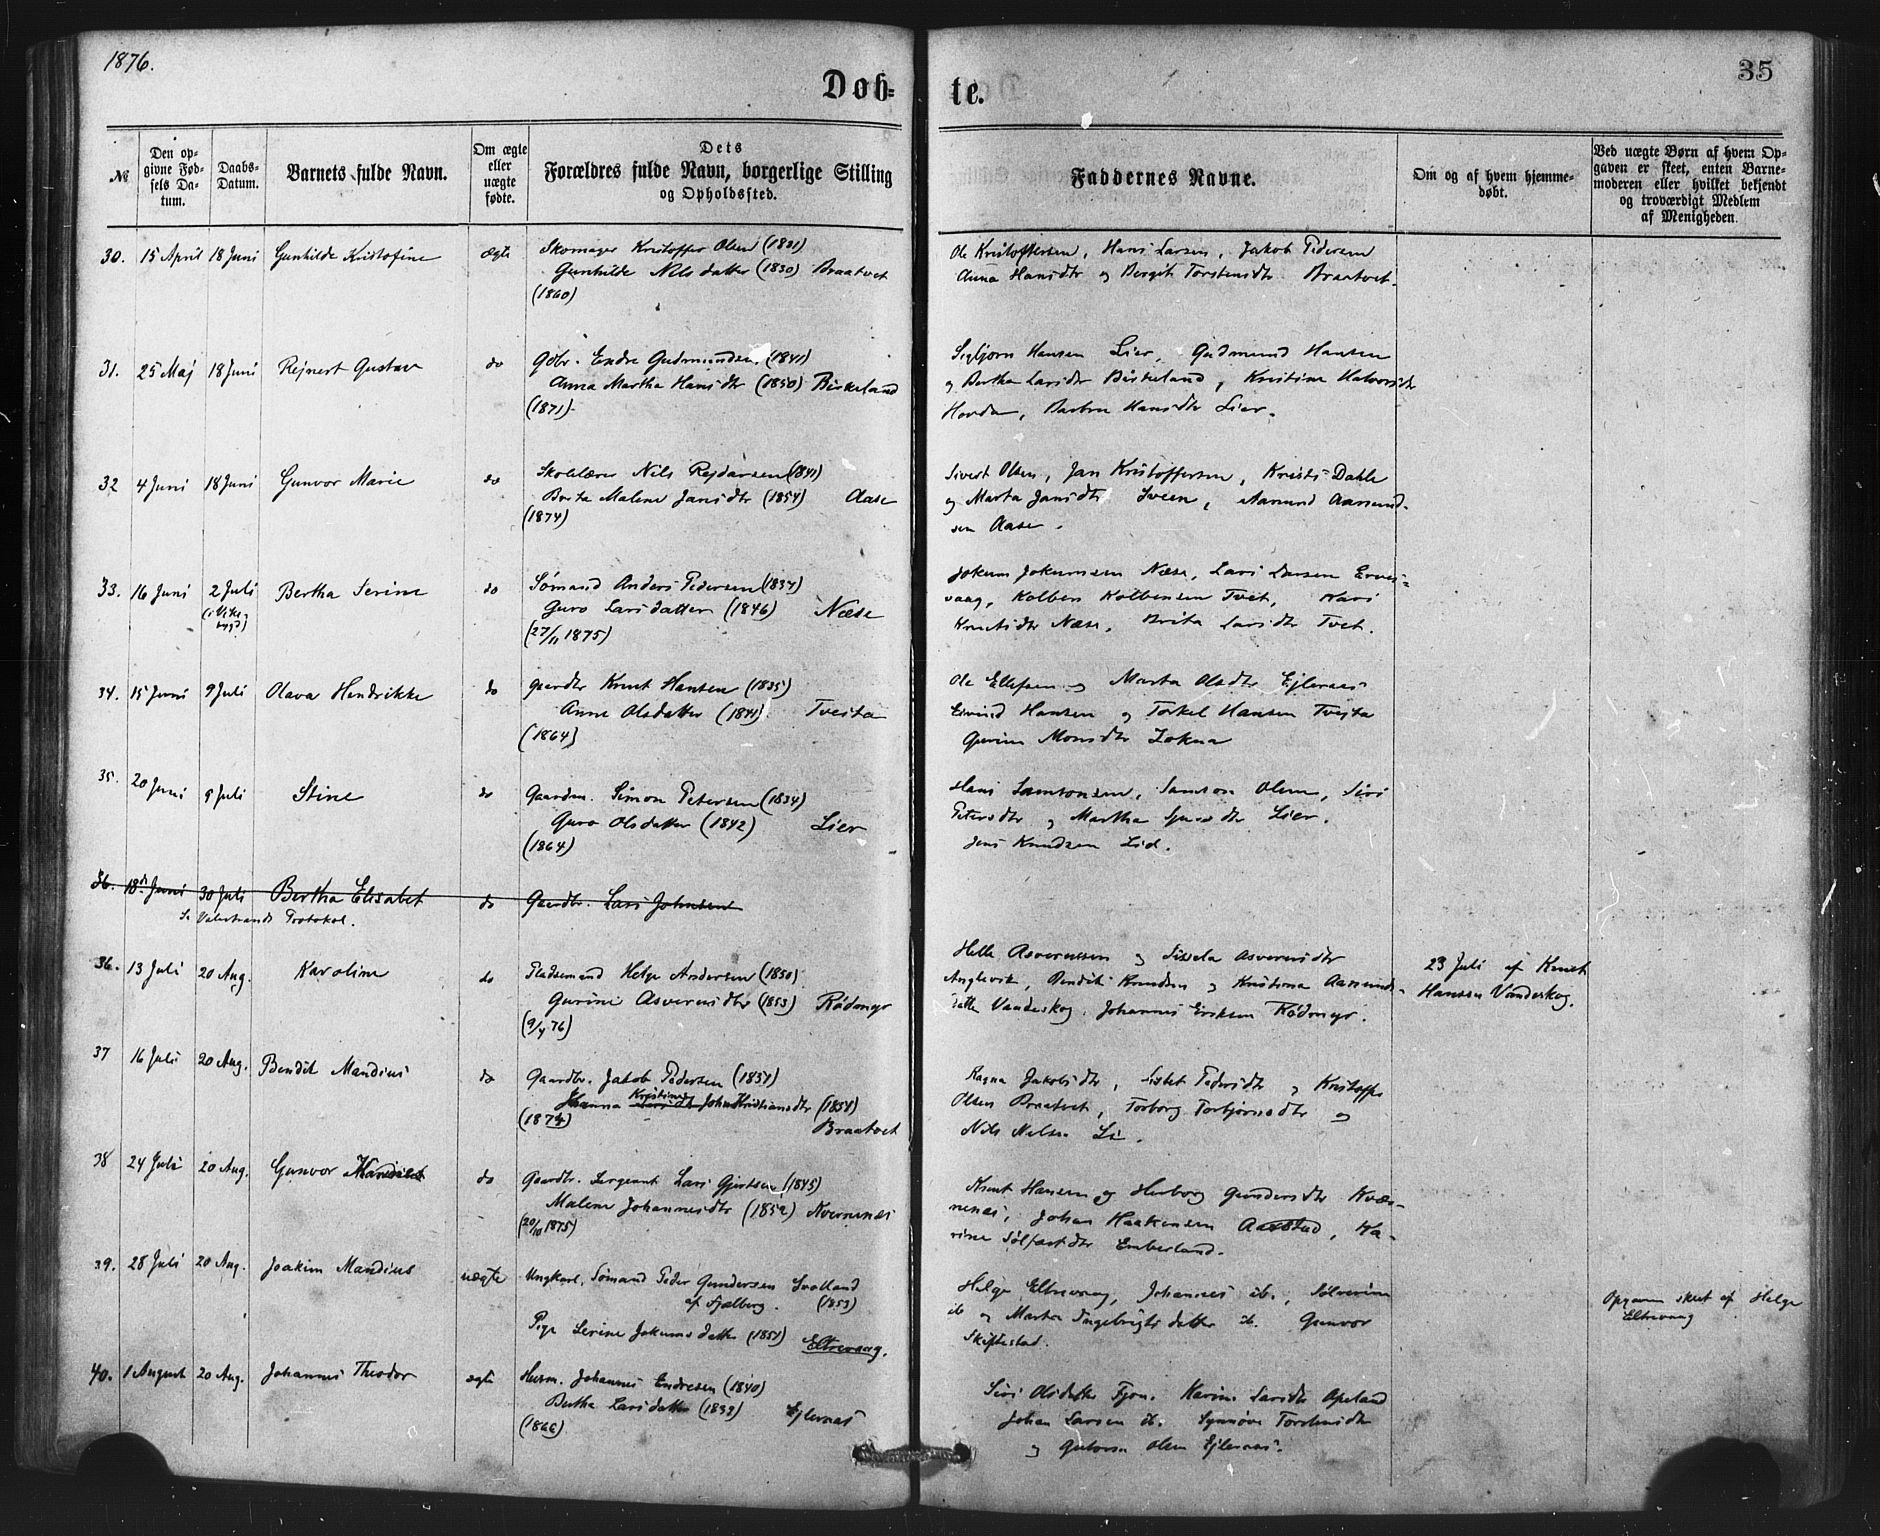 1876.
35
Døb= te.
№
Den op-
givne Fød-
sels Da-
tum.
Daabs-
Datum.
Barnets fulde Navn.
Om ægte
eller
uægte
fødte.
Dets
Forældres fulde Navn, borgerlige Stilling
og Opholdssted.
Faddernes Navne.
Om og af hvem hjemme-
døbt.
Ved uægte Børn af hvem Op-
gaven er skeet, enten Barne-
moderen eller hvilket bekjendt
og troværdigt Medlem
af Menigheden.
30. 15 April 18 Juni Gunhilde Kristofine ægte Skomager Kristoffer Olsen (1831)
Gunhilde Nilsdatter (1830) Braatvet
(1860)
Ole Kristoffersen, Hans Larsen, Jakob Pedersen
Anna Hansdtr og Bergit Torstensdtr Braatvet.
31. 25 Maj 18 Juni Rejnert Gustav do Gdbr. Endre Gudmundsen (1841)
Anna Martha Hansdtr (1850) Birkeland
(1871).
Sigbjørn Hansen Lier, Gudmund Hansen
og Bertha Larsdtr Birkeland, Kristine Halvorsdtr
Hovda, Barbra Hansdtr Lier.
32 4 Juni 18 Juni Gunvor Marie do Skolelærer Nils Rejdarsen (1841)
Berta Malene Jansdtr (1854) Aase
(1874)
Sivert Olsen, Jan Kristoffersen, Dahle
og Marta Jansdtr Sveen, Aamund Aamund-
sen Aase.
33. 16 Juni 2 Juli (i Vike-
bygd) Bertha Serine do Sømand Anders Pedersen (1834)
Guro Larsdatter (1846) Næse
(27/11 1875)
Jokum Jokumsen Næse, Lars Larsen Erves-
vaag, Kolben Kolbensen Tvet, Kari
Knutsdtr Næse, Brita Larsdtr Tvet.
34. 15 Juni 9 Juli Olava Hendrikke do Gaardbr Knut Hansen (1835)
Anne Olsdatter (1841) Tveita
(1864)
Ole Ellefsen og Marta Olsdtr Ejleraas
Eivind Hansen og Torkel Hansen Tvejta
Gurine Monsdtr Lokna
35. 20 Juni 9 Juli Stine do Gaardm. Simon Petersen (1834)
Guro Olsdatter (1842) Lier
(1864)
Hans Samsonsen, Samson Olsen, Siri
Petersdtr og Martha Lier.
Jens Knudsen Lid.
36. 18de Juni 30 Juli Bertha Elisabet do Gaardbr. Lars Johnsen
Se Valestrands Protokol.
36. 13 Juli 20 Aug. Karoline do Pladsemand Helge Andersen (1850)
Gurine Asversdtr (1853) Rødmyr
(9/4 76)
Helle Asversen og Sissela Asversdtr
Anglevik, Bendik Knudsen og Kristina Aamunds-
datter Vandeskog. Johannes Eriksen Rødmyr.
23 Juli af Knut
Hansen Vandeskog.
37 16 Juli 20 Aug. Bendik Mandius do Gaardbr. Jakob Pedersen (1851)
Johanna Kristine Kristiansdtr (1854)
(1874) Braatvet
Ragna Jakobsdtr, Pedersdtr og Kristoffer
Olsen Braatvet, Torborg Torbjørnsdtr og
Nils Nilsen Li.
38 24 Juli 20 Aug. Gunvor do Gaardbr. Sergeant Lars Gjertsen (1845)
Malene Johannesdtr (1852) Kvernenæs
(20/10 1875)
Knut Hansen og Herborg Gundersdtr Kvær-
nenæs, Johan Haakonsen Aarstad, Ka-
rine Sølfæstdtr Emberland.
39. 28 Juli 20 Aug. Joakim Mandius uægte Ungkarl, Sømand Peder Gundersen Svolland
af Fjelberg. (1853)
Pige Serine Jokumsdatter (1851) Eltrevaag.
Helge Eltrevaag, Johannes ib., Sølverine
ib og Marta Ingebrigtsdatter ib. Gunvor
Skiftestad.
Opgaven skeet af Helge
Eltrevaag
40. 1 August 20 Aug. Johannes Theodor ægte Husm. Johannes Endresen (1840)
Bertha Larsdatter (1833) Ejleraas
(1866)
Siri Olsdatter Tjon. Karine Larsdtr Opeland
Johan Larsen ib. Synnøve Torstensdtr
og Olsen Ejleraas.